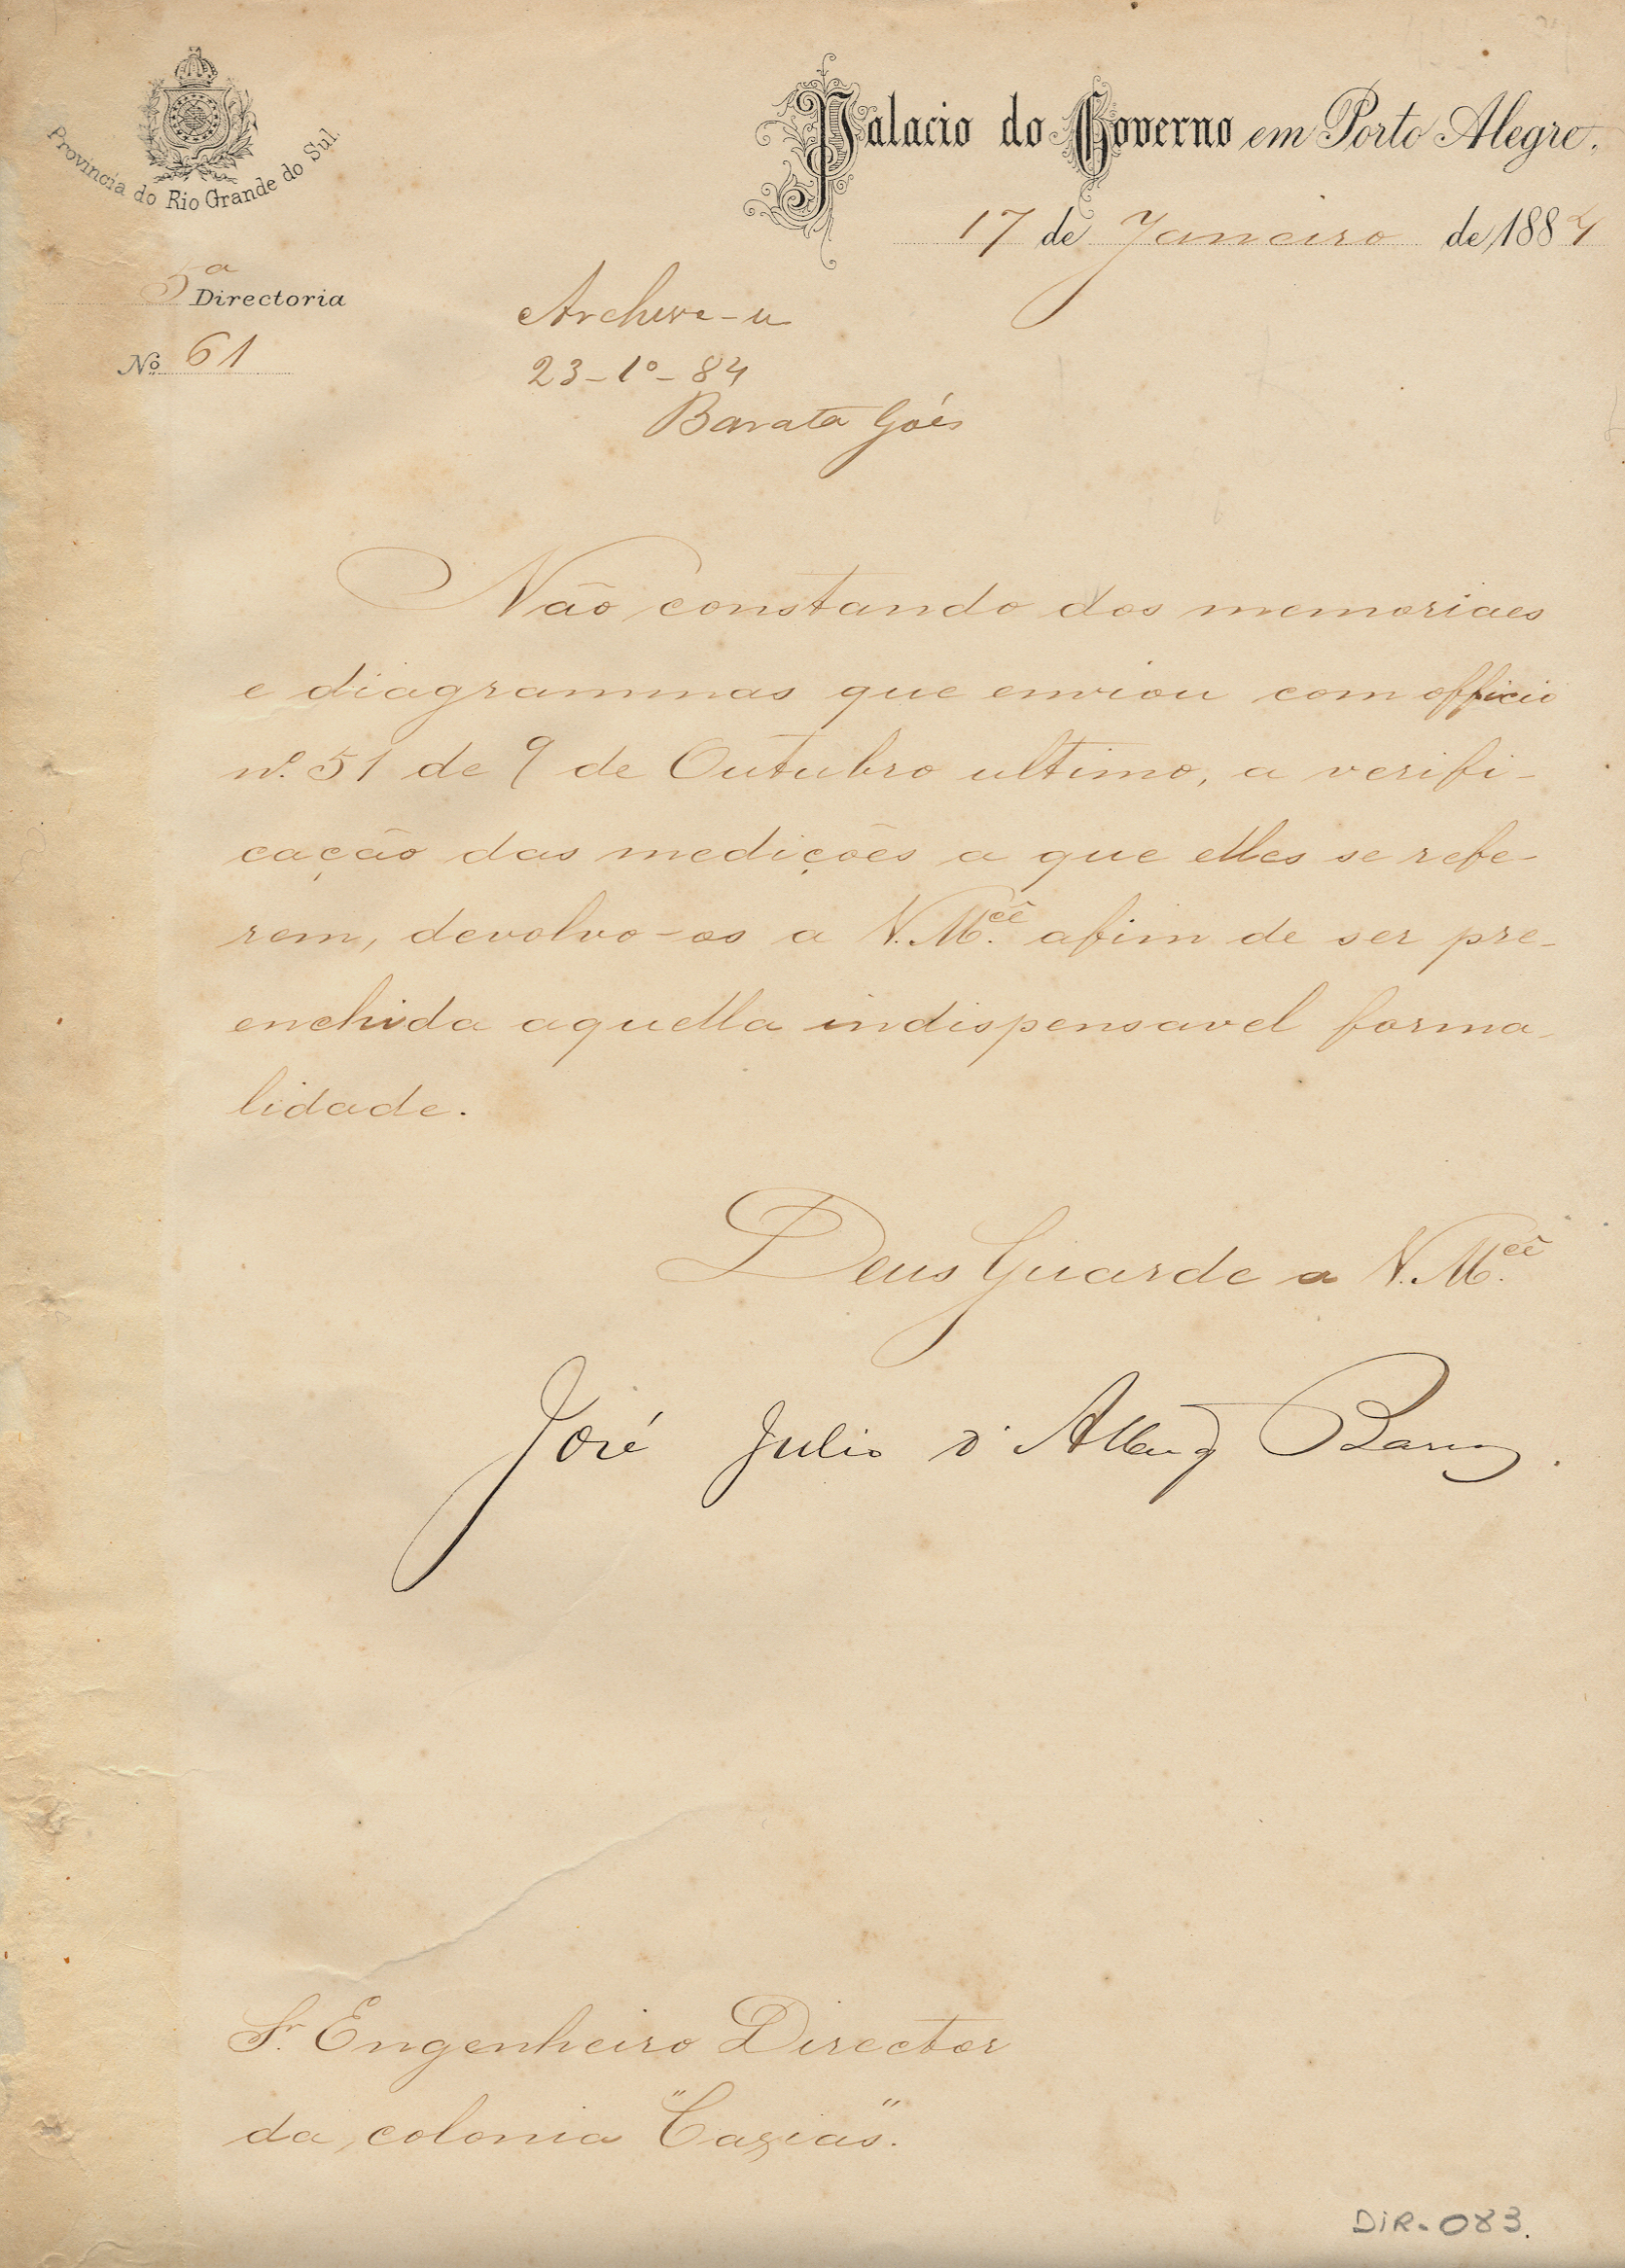 Provincia do Rio Grande do Sul
Palacio do Governo em Porto Alegre.
17 de Janeiro de 1884
5ª Directoria
Nº 61
Archive-se
23-1º-84
Barata Góes
Não constando dos memoriaes
e diagrammas que enviou com officio
nº. 51 de 9 de Outubro ultimo, a verifi-
cação das medições a que elles se refe-
rem, devolvo-os a V. M.cê afim de ser pre-
enchida aquella indispensavel forma-
lidade.
Deus Guarde a V. M.cê
José Julio d'Albuq Barros.
Sr. Engenheiro Director
da colonia "Caxias".
DIR-083.